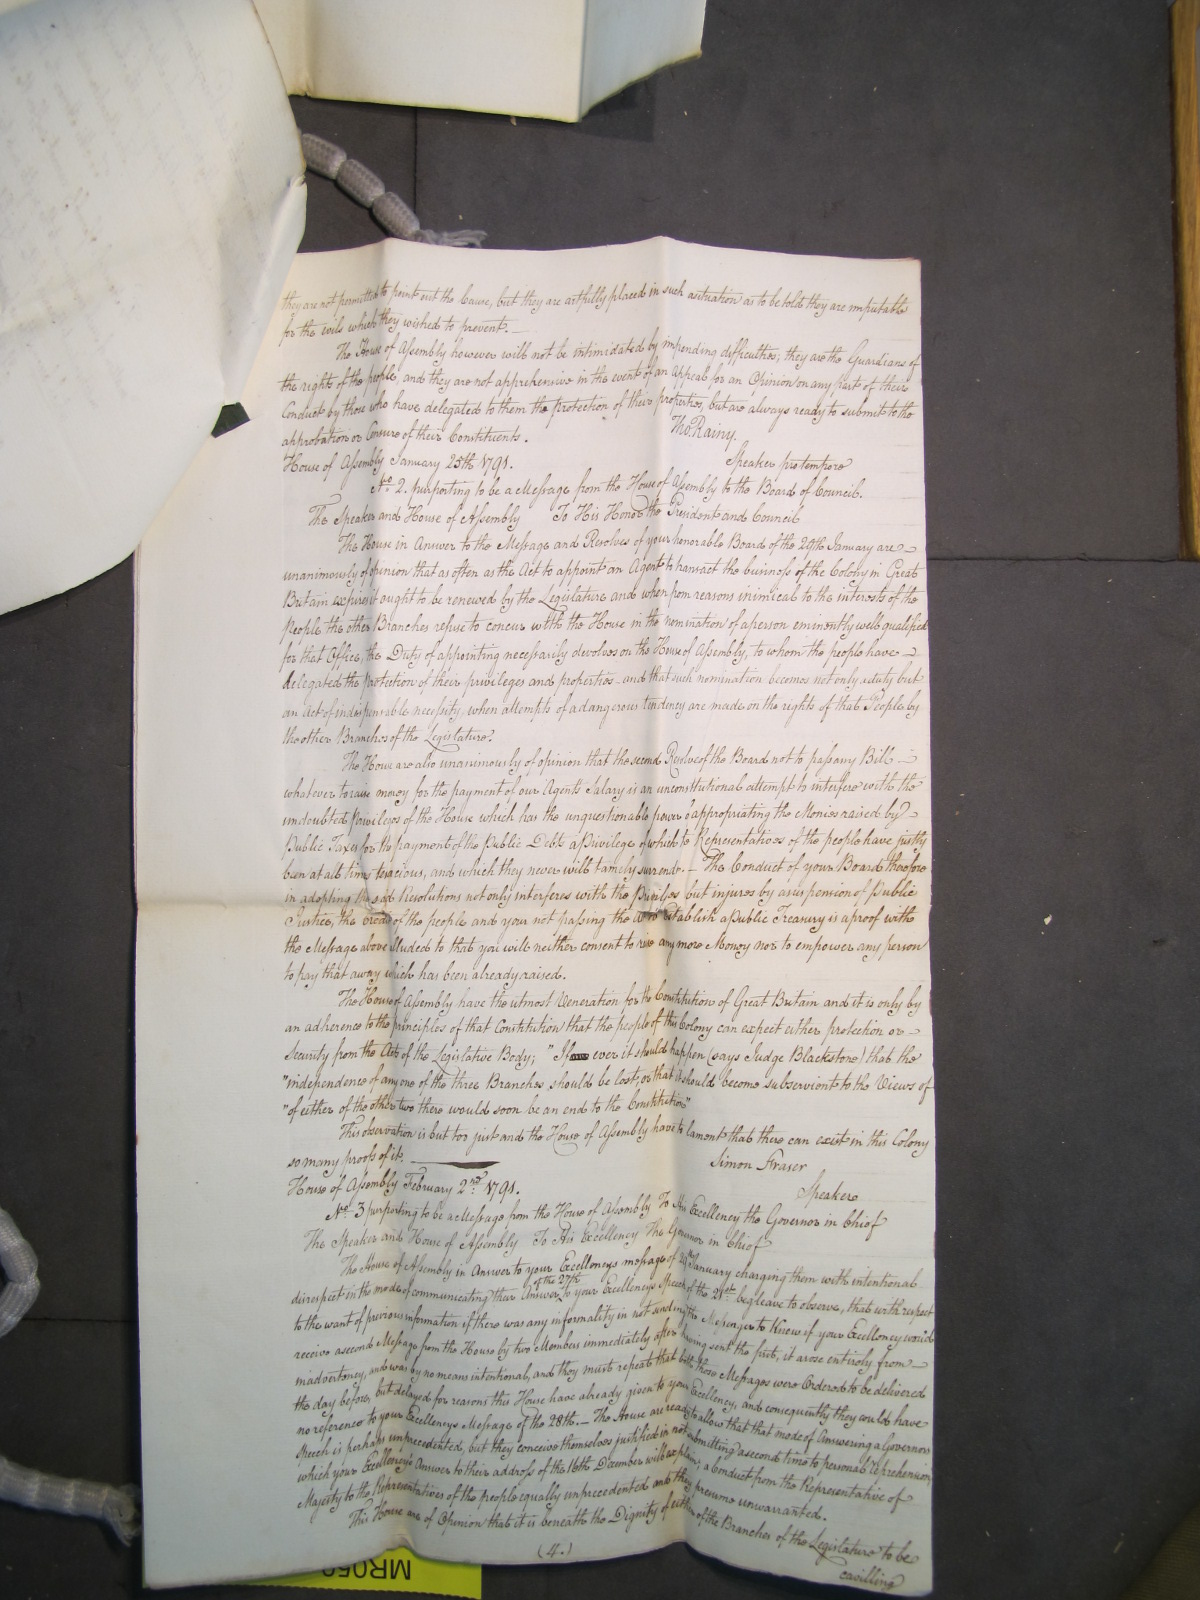 they are not permitted to point out the Cause, but they are artfully placed in such a situation as to be told they are imputable
for the evils which they wished to prevent. —
The House of Assembly however will not be intimidated by impending difficulties; they are the Guardians of
the rights of the people, and they are not apprehensive in the event of an Appeal for an Opinion on any part of their
Conduct by those who have delegated to them the protection of their properties, but are always ready to submit to the
approbation or Censure of their Constituents.
Tho. Rainy.
House of Assembly January 25th 1791.
Speaker pro tempore
No. 2. purporting to be a Message from the House of Assembly to the Board of Council.
The Speaker and House of Assembly To His Honor the President and Council
The House in Answer to the Message and Resolves of your honorable Board of the 29th January are
unanimously of opinion that as often as the Act to appoint an Agent to transact the business of the Colony in Great
Britain expires it ought to be renewed by the Legislature and when from reasons inimical to the interests of the
People the other Branches refuse to concur with the House in the nomination of a person eminently well qualified
for that Office, the Duty of appointing necessarily devolves on the House of Assembly, to whom the people have
delegated the Protection of their privileges and properties and that such nomination becomes not only a duty but
an Act of indispensable necessity, when attempts of a dangerous tendency are made on the rights of that People by
the other Branches of the Legislature.
The House are also unanimously of opinion that the second Resolve of the Board not to pass any Bill
whatever to raise money for the payment of our Agents Salary is an unconstitutional attempt to interfere with the
undoubted Privileges of the House which has the unquestionable power of appropriating the Monies raised by
Public Taxes for the payment of the Public Debts a Privilege of which the Representatives of the people have justly
been at all times tenacious, and which they never will tamely surrender. — The Conduct of your Board therefore
in adopting the said Resolutions not only interferes with the Privileges but injures by a suspension of Public
Justice, the credit of the people and your not passing the to establish a Public Treasury is a proof with
the Message above alluded to that you will neither consent to raise any more Money nor to empower any person
to pay that away which has been already raised.
The House of Assembly have the utmost Veneration for the Constitution of Great Britain and it is only by
an adherence to the principles of that Constitution that the people of this Colony can expect either protection or
Security from the Acts of the Legislative Body; "If ever it should happen (says Judge Blackstone) that the
"independence of any one of the three Branches, should be lost, or that it should become subservient to the Views of
"of either of the other two there would soon be an end to the Constitution"
This observation is but too just and the House of Assembly have to lament that there can exist in this Colony
so many proofs of it.
Simon Fraser
House of Assembly February 2nd 1791.
Speaker
No. 3 purporting to be a Message from the House of Assembly To His Excellency the Governor in Chief
The Speaker and House of Assembly To His Excellency The Governor in Chief
The House of Assembly in Answer to your Excellencys message of 29th January charging them with intentional
disrespect in the mode of communicating their Answer of the 27th to your Excellencys Speech of the 21st beg leave to observe, that with respect
to the want of previous information if there was any informality in not sending the Messenger to know if your Excellency would
receive a second Message from the House by two Members immediately after having sent the first, it arose entirely from
inadvertency, and was by no means intentional, and they must repeat that both those Messages were Ordered to be delivered
the day before, but delayed for reasons this House have already given to your Excellency, and consequently they could have
no reference to your Excellencys Message of the 28th. — The House are ready to allow that that mode of Answering a Governors
Speech is perhaps unprecedented, but they conceive themselves justified in not submitting a second time to personal reprehension,
which your Excellencys Answer to their address of the 16th December will explain; a Conduct from the Representative of
Majesty to the Representatives of the people equally unprecedented and they presume unwarranted.
This House are of Opinion that it is beneath the Dignity of either of the Branches of the Legislature to be
(4.)
cavilling
MR05